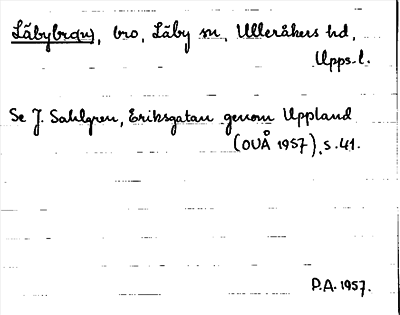 Läbybro(n), bro, Läby sn, Ulleråkers hd,
Upps. l.
Se J. Sahlgren, Eriksgatan genom Uppland
(OUÅ 1957), s. 41.
P.A. 1957.